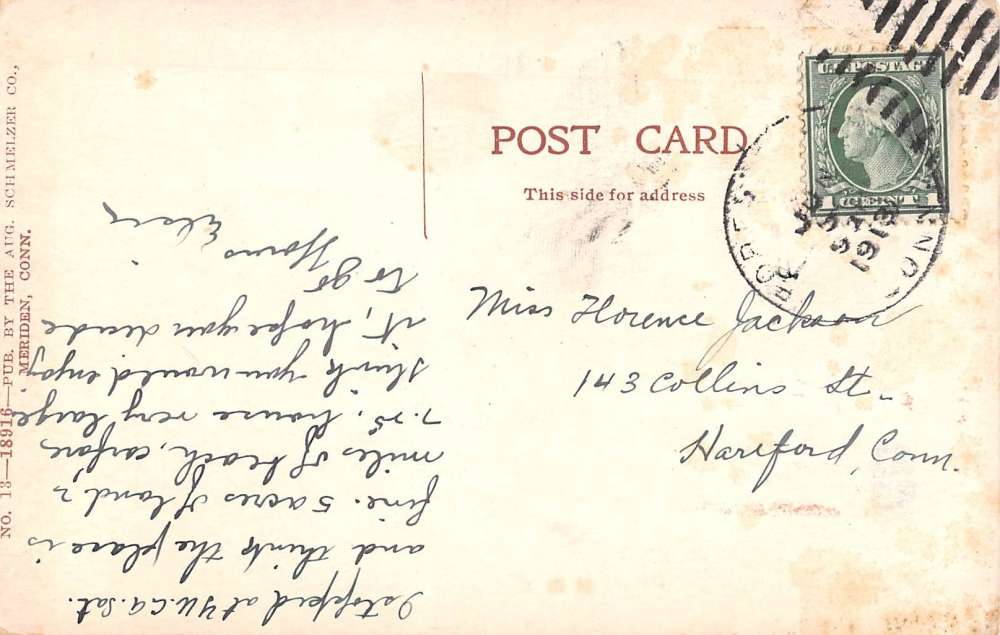 POST CARD
This side for address
U.S. POSTAGE
1 CENT
CONN
1916
Miss Florence Jackson
143 Collins St.
Hartford, Conn.
I stopped at Y.W.C.A. Sat.
and think the place is
fine. 5 acres of land, 2
miles of beach, carfare
7.25, house very large
think you would enjoy
it, hope you decide
to go
NO. 13—18916—PUB. BY THE AUG. SCHMELZER CO.,
MERIDEN, CONN.